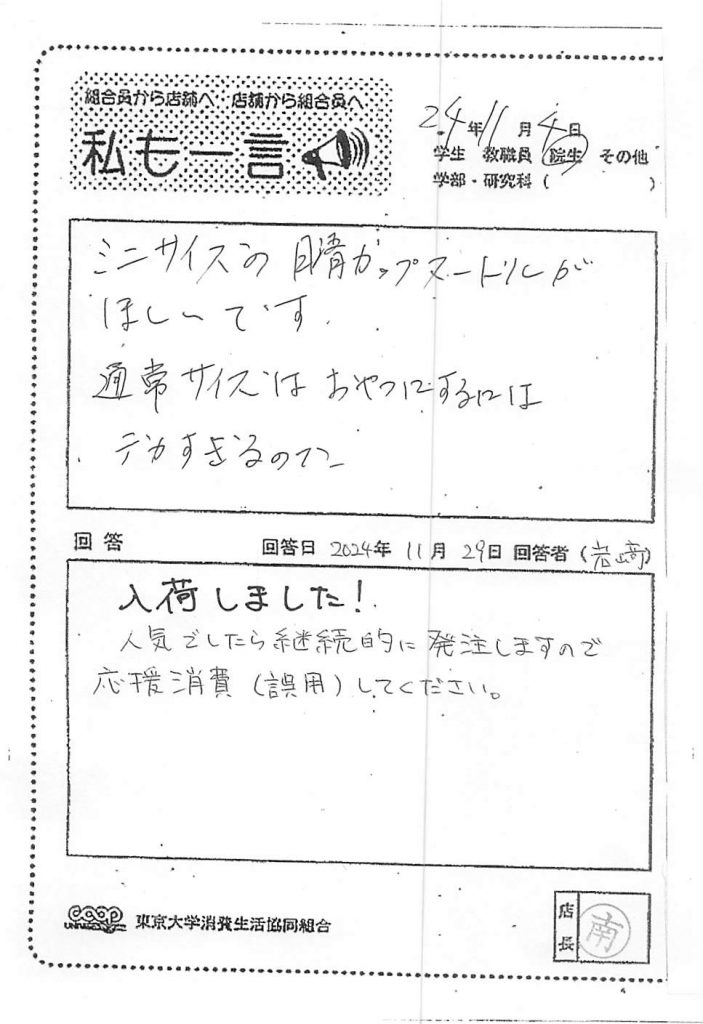 組合員から店舗へ 店舗から組合員へ
私も一言
24年11月4日
学生 教職員 院生 その他
学部・研究科( )
ミニサイズの 日清カップヌードルが
ほしいです.
通常サイズは おやつにするには
デカすぎるので
回答 回答日 2024年 11月 29日 回答者(岩崎)
入荷しました!
人気でしたら継続的に発注しますので
応援消費(誤用)してください。
coop 東京大学消費生活協同組合
店長 南